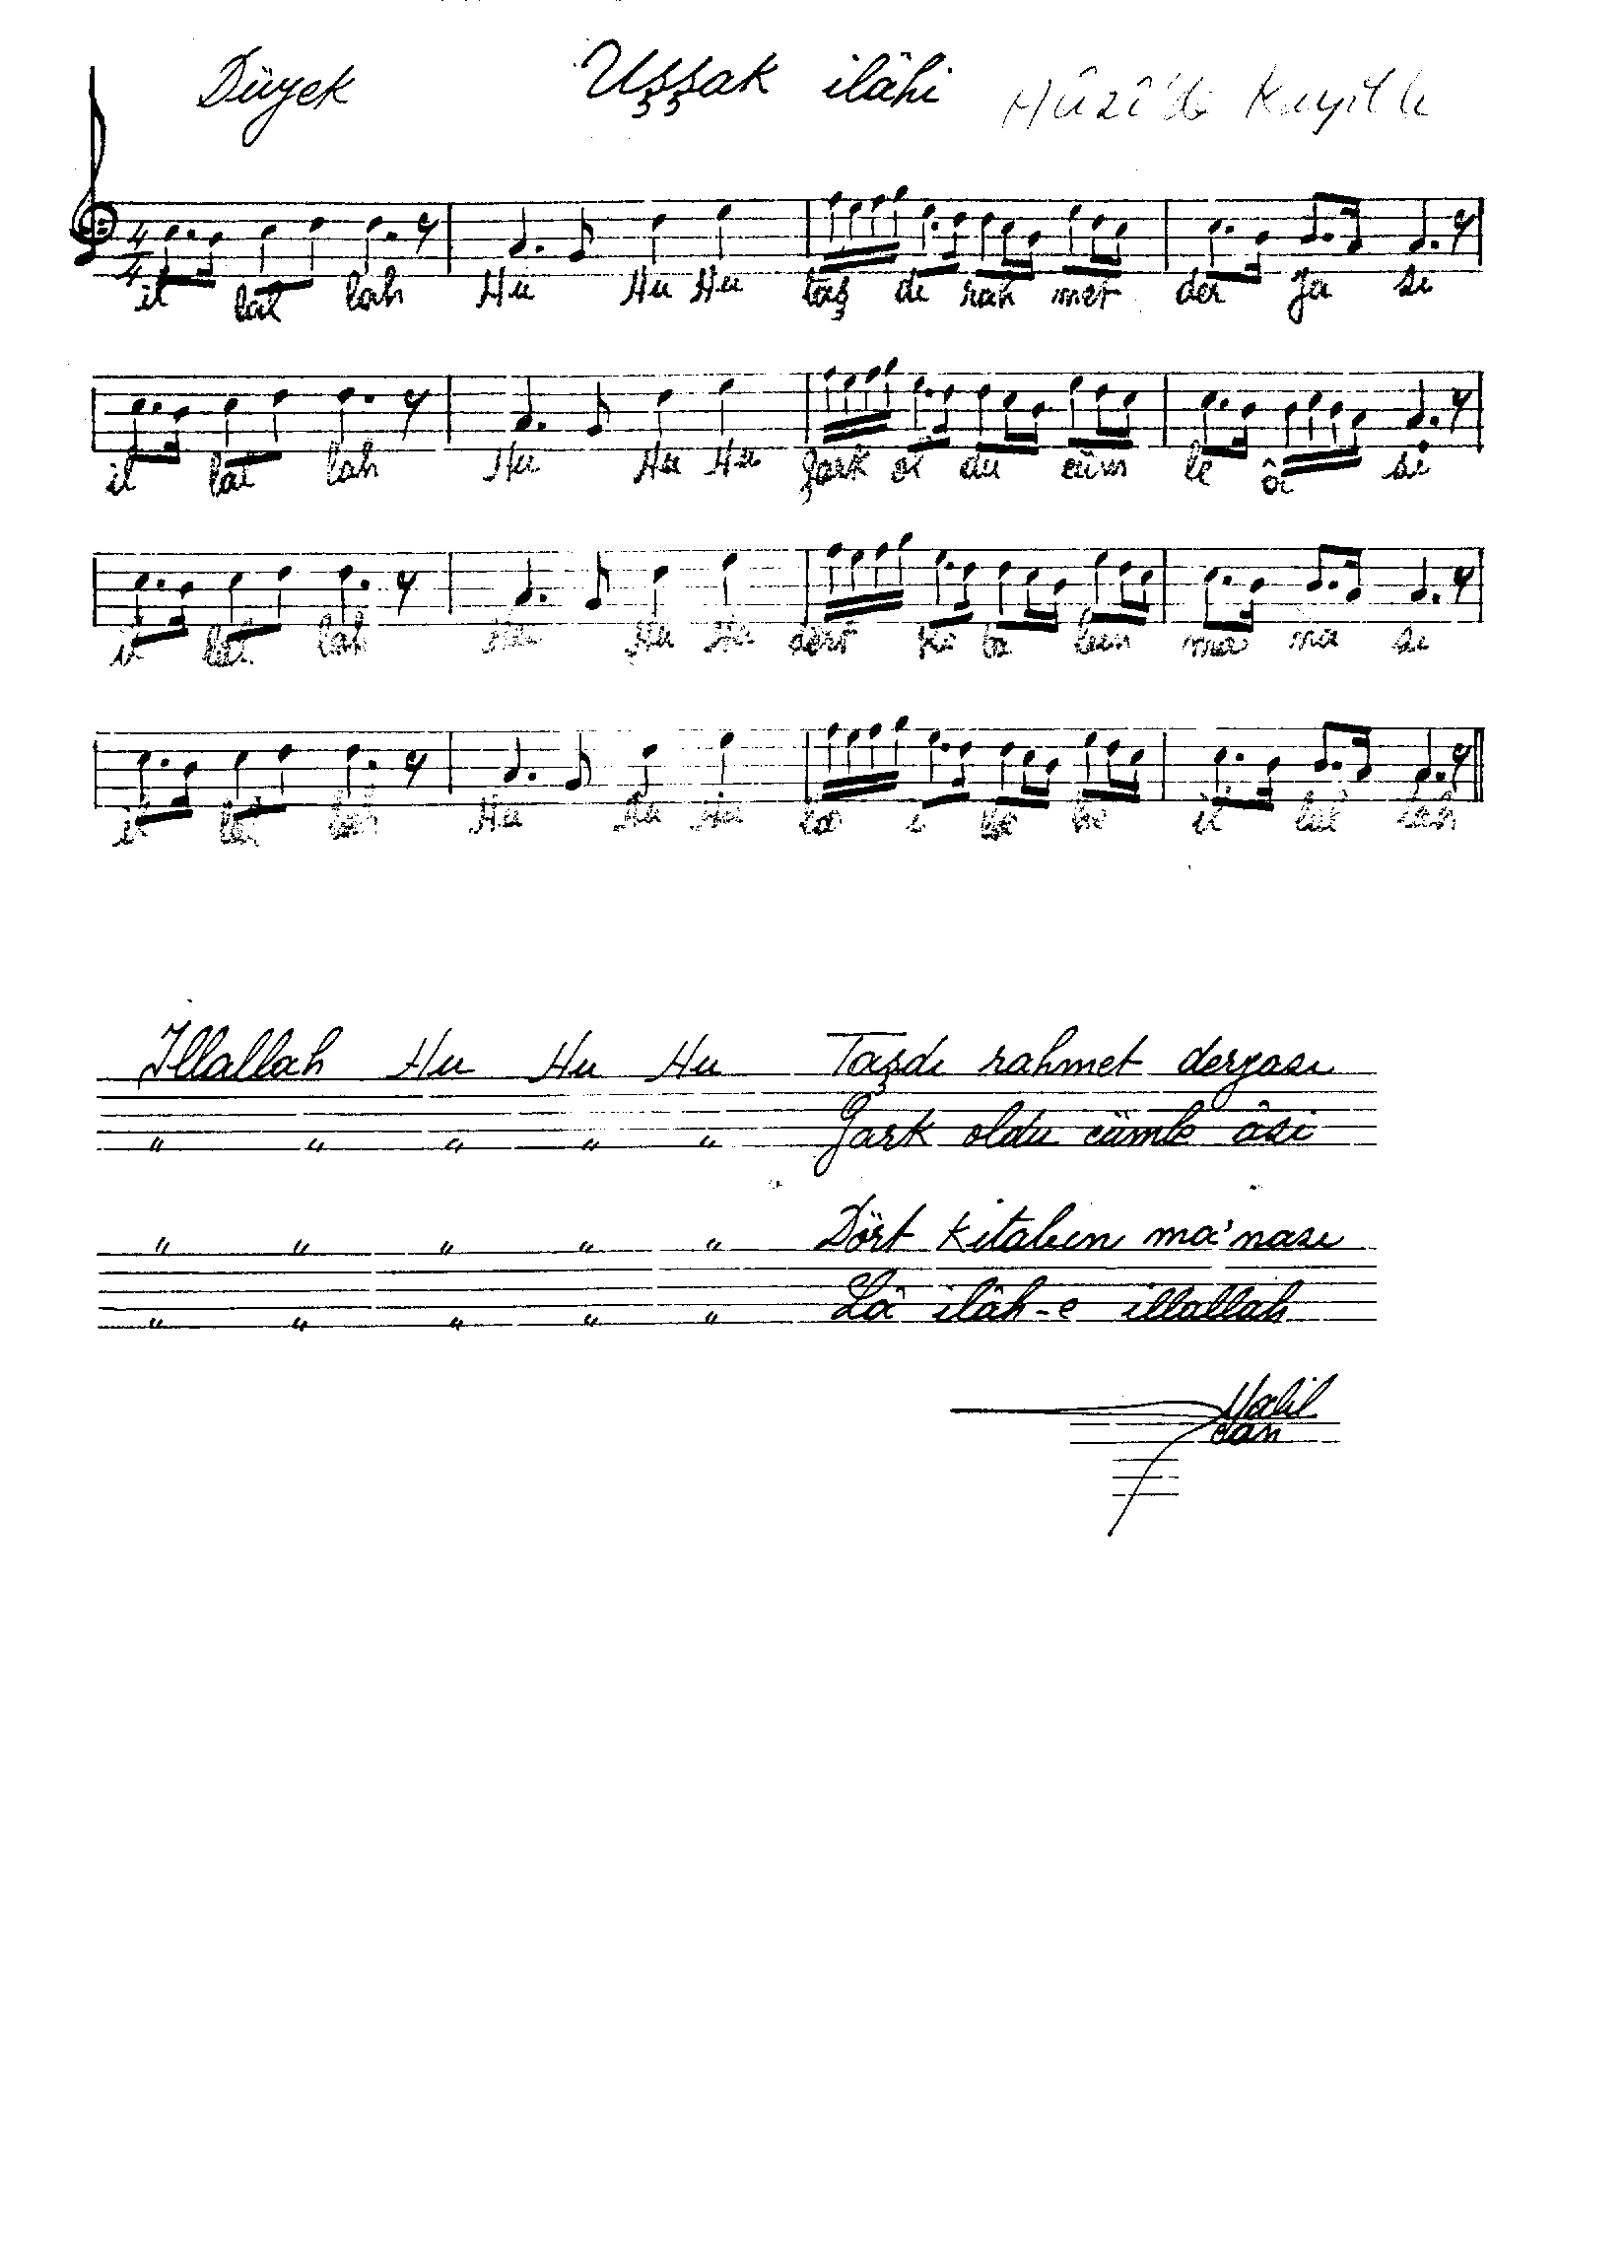 Düyek Uşşak ilâhi Hûzî'de Kayıtlı
4/4
il lal lah Hu Hu Hu taş dı rah met der ya sı
il lal lah Hu Hu Hu Gark ol du cüm le â si
il lal lah Hu Hu Hu dört ki ta bın ma na sı
il lal lah Hu Hu Hu la i lâ he il lal lah
Illallah Hu Hu Hu Taşdı rahmet deryası
" " " " " Gark oldu cümle âsi
" " " " " Dört kitabın ma'nası
" " " " " Lâ ilâh-e illallah
Halil
can